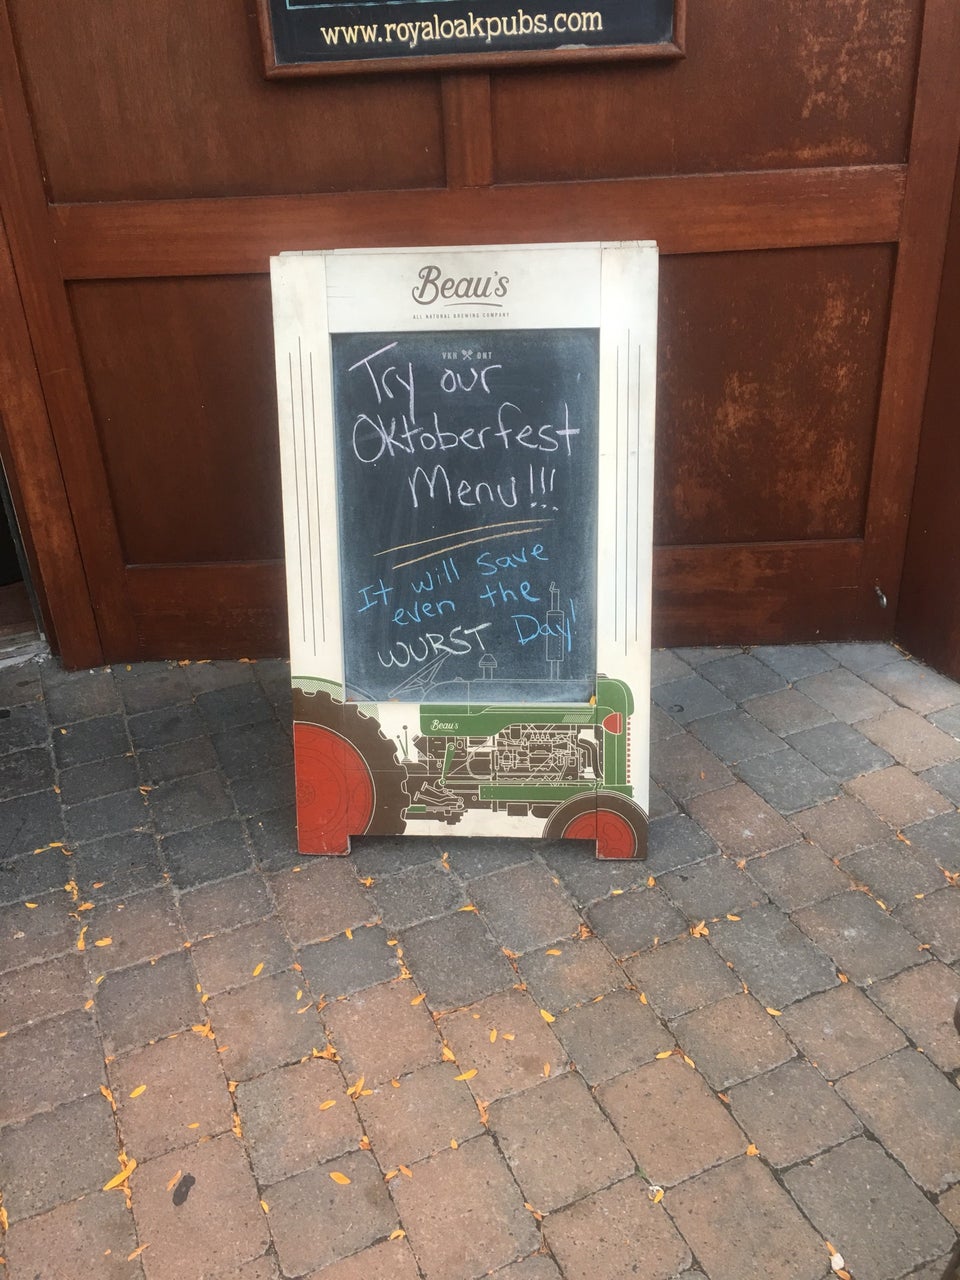 www.royaloakpubs.com
Beau's
ALL NATURAL BREWING COMPANY
VKH ONT
Try our
Oktoberfest
Menu!!!
It will save
even the
WURST Day!
Beau's